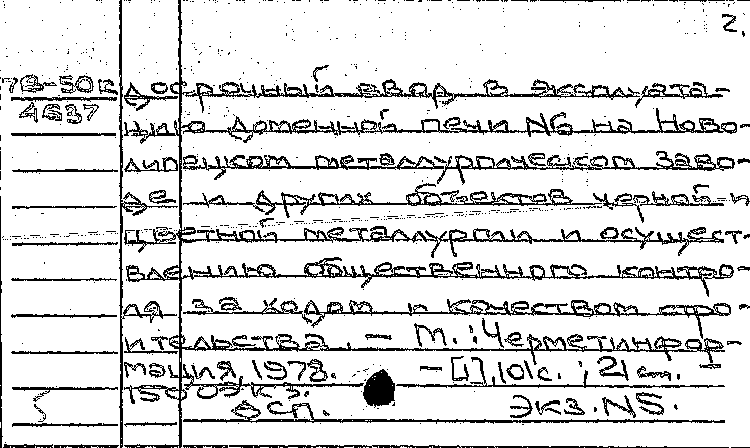 2.
78-50в
4637
досрочный ввод в эксплуата-
цию доменной печи N6 на Ново-
липецком металлургическом заво-
де и других объектов черной и
цветной металлургии и осущест-
влению общественного контро-
ля за ходом и качеством стро-
ительства. — М.: Черметинфор-
мация, 1978. — [1], 101с. ; 21 см. —
1500экз.
ДСП. экз. N5.